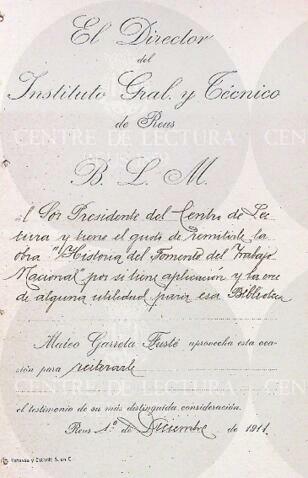 El Director
del
Instituto Gral. y Técnico
de Reus
B. L. M.
al Sor Presidente del Centro de Lec-
tura y tiene el gusto de remitirle la
obra "Historia del Fomento del Trabajo
Nacional" por si tiene aplicación y
de alguna utilidad para esa Biblioteca
Mateo Garreta Fusté aprovecha esta oca-
sión para reiterarle
el testimonio de su más distinguida consideración.
Reus 1º de Diciembre de 1911.
CENTRE DE LECTURA
REUS
CENTRE DE LECTURA